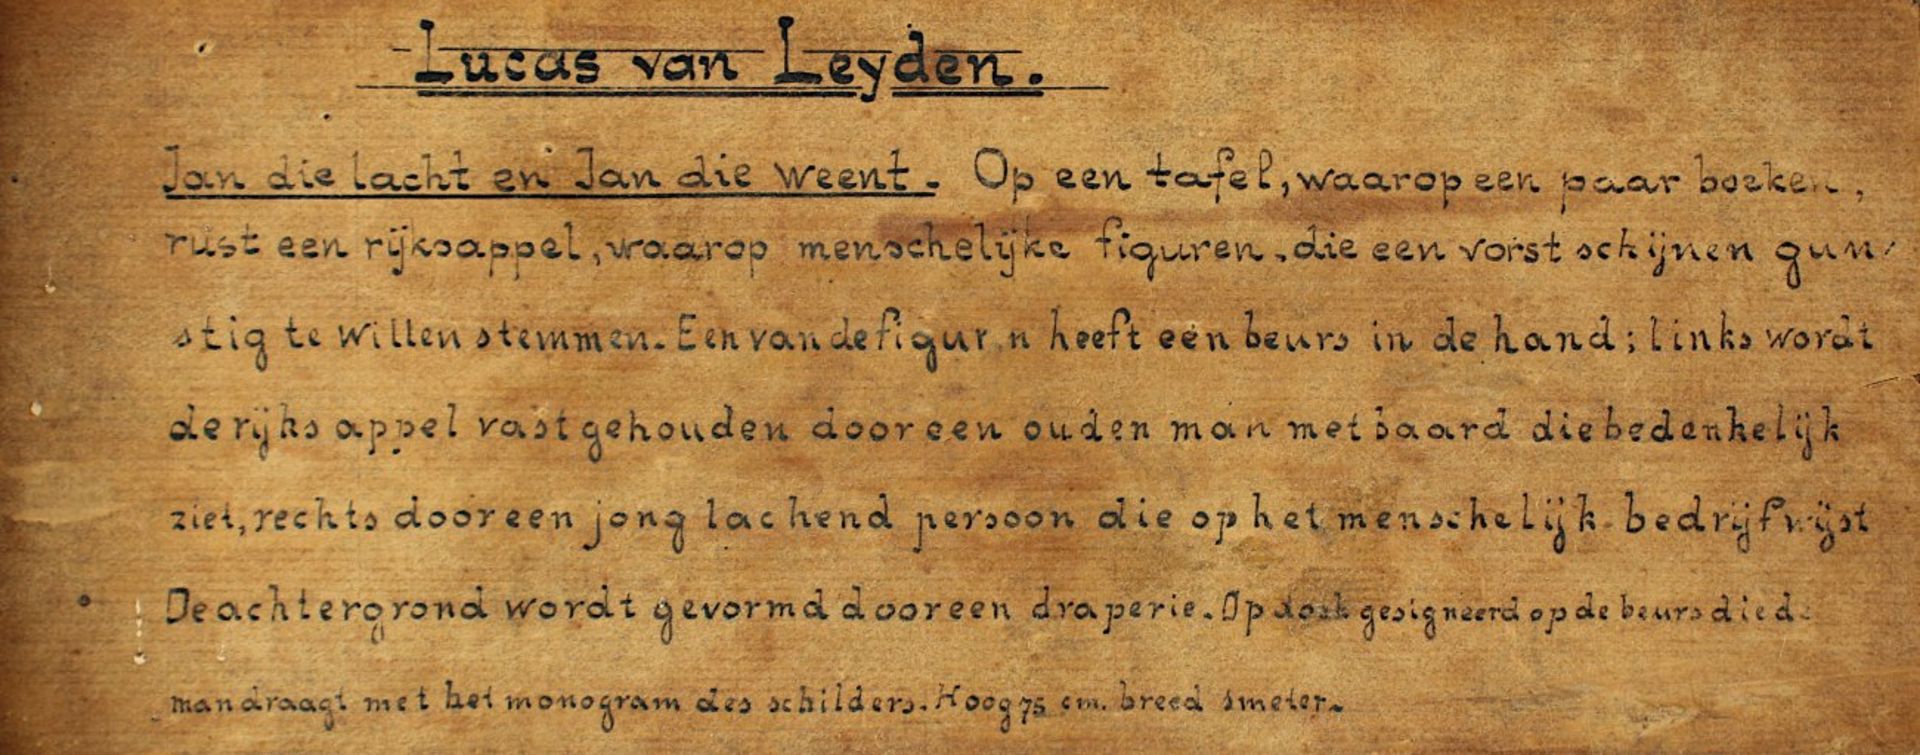 Lucas van Leyden.
Jan die lacht en Jan die weent. Op een tafel, waarop een paar boeken,
rust een rijksappel, waarop menschelijke figuren, die een vorst schijnen gun-
stig te willen stemmen. Een van de figuren heeft een beurs in de hand; links wordt
de rijksappel vastgehouden door een ouden man met baard die bedenkelijk
ziet, rechts door een jong lachend persoon die op het menschelijk bedrijf wijst
De achtergrond wordt gevormd door een draperie. Op doek gesigneerd op de beurs die de
man draagt met het monogram des schilders. Hoog 75 cm. breed meter.